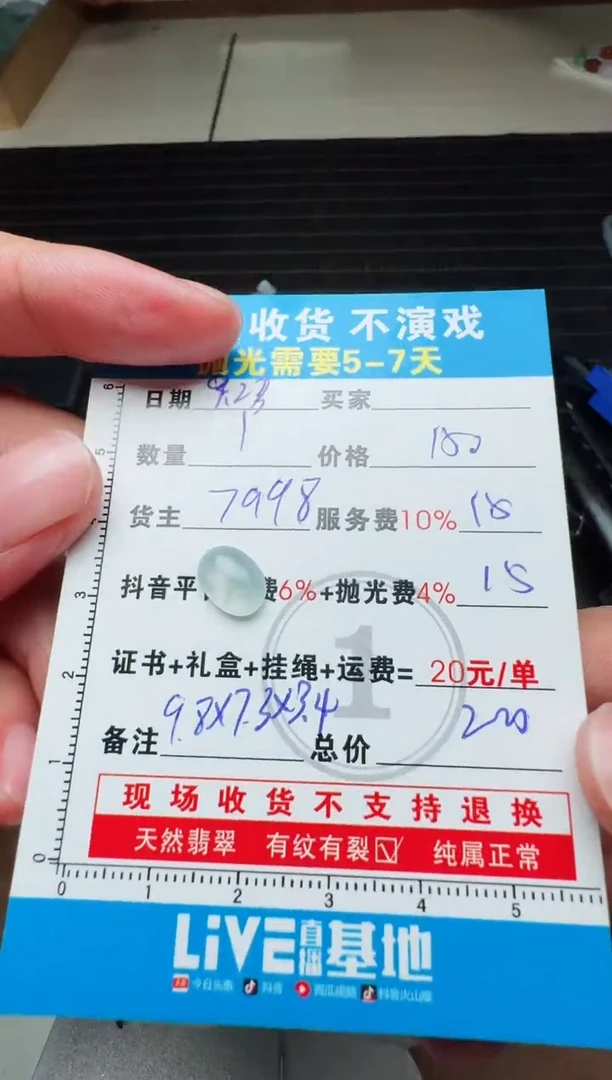 收货 不演戏
抛光需要5-7天
日期 9.23 买家
数量 1 价格
货主 7998 服务费10% 18
抖音平 费6%+抛光费4% 18
证书+礼盒+挂绳+运费= 20元/单
备注 9.8X7.3X3.4 总价
1
现场收货不支持退换
天然翡翠 有纹有裂☑ 纯属正常
0 1 2 3 4 5 6
0 1 2 3 4 5
LIVE直播基地
今日头条 抖音 西瓜视频 抖音火山版